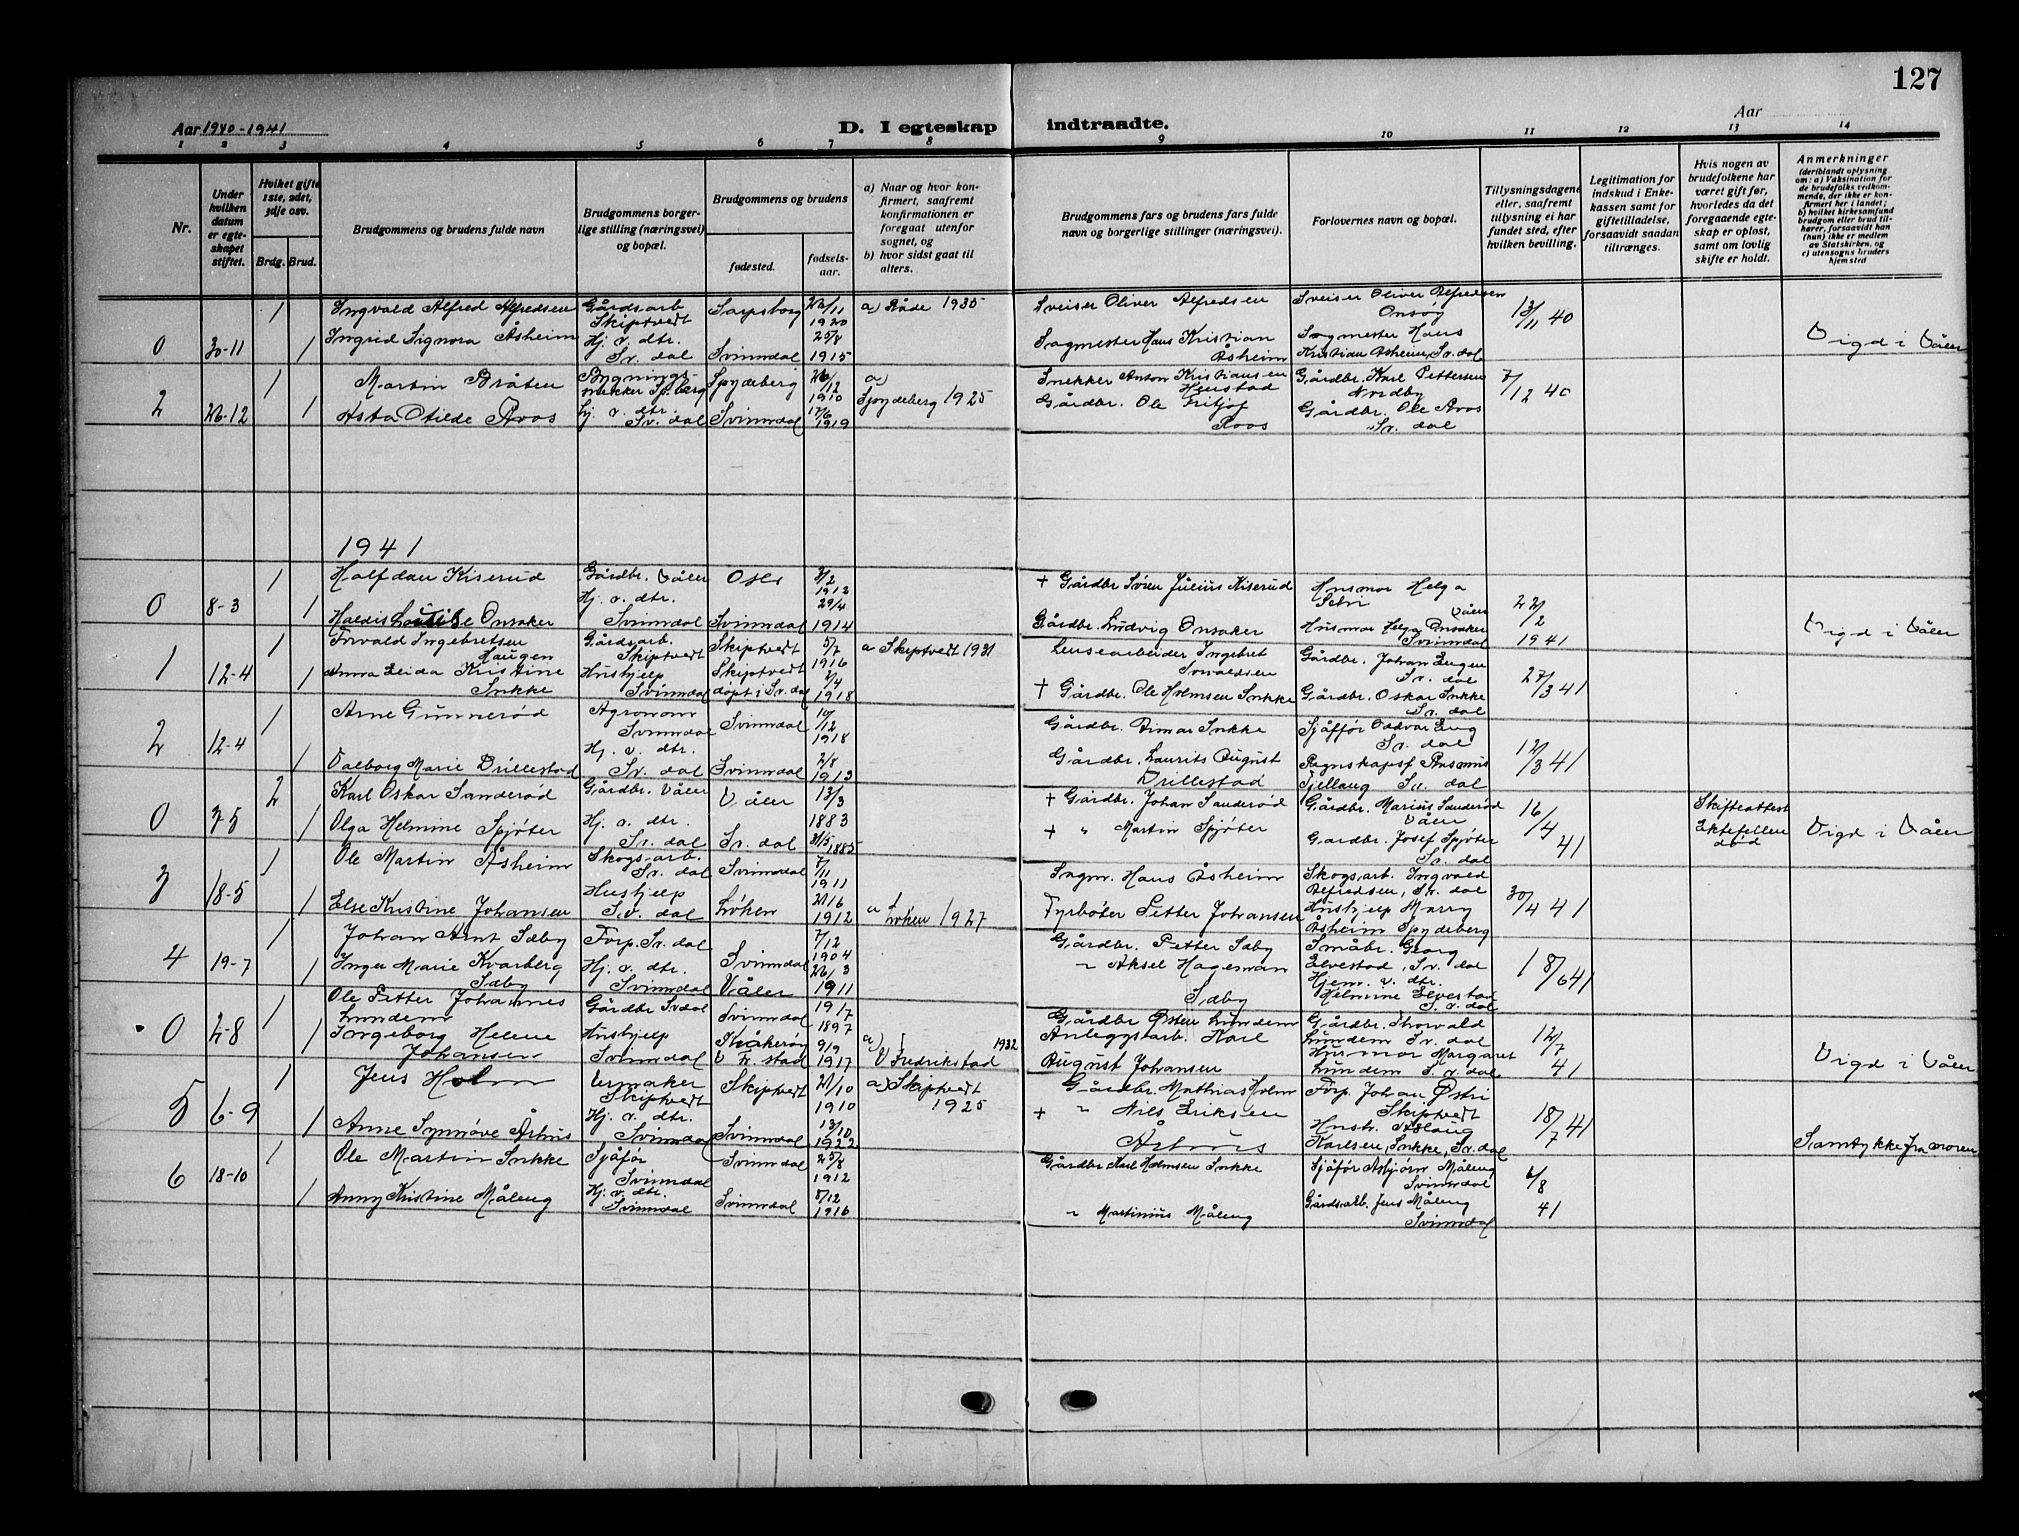 127
Aar 1940-1941
D. I egteskap indtraadte.
Aar
1 2 3 4 5 6 7 8 9 10 11 12 13 14
Nr.
Under hvilken datum er egteskapet stiftet.
Hvilket gifte 1ste, 2det, 3dje osv.
Brdg. Brud.
Brudgommens og brudens fulde navn
Brudgommens borgerlige stilling (næringsvei) og bopæl.
Brudgommens og brudens
fødested.
fødselsaar.
a) Naar og hvor konfirmert, saafremt konfirmationen er foregaat utenfor sognet, og
b) hvor sidst gaat til alters.
Brudgommens fars og brudens fars fulde navn og borgerlige stillinger (næringsvei).
Forlovernes navn og bopæl.
Tillysningsdagene eller, saafremt tillysning ei har fundet sted, efter hvilken bevilling.
Legitimation for indskud i Enkekassen samt for giftetilladelse, forsaavidt saadan tiltrænges.
Hvis nogen av brudefolkene har været gift før, hvorledes da det foregaaende egteskap er opløst, samt om lovlig skifte er holdt.
Anmerkninger
(deriblandt oplysning om: a) Vaksination for de brudefolks vedkommende, der ikke er konfirmert her i landet; b) hvilket kirkesamfund brudgom eller brud tilhører, forsaavidt han (hun) ikke er medlem av Statskirken, og c) utensogns bruders hjemsted
0 30-11 1 Ingvald Alfred Alfredsen Gårdsarb Skiptvedt Sarpsborg 1920 a) Råde 1935 Sveiser Oliver Alfredsen Sveiser Oliver Alfredsen Onsøy 13/11 40
1 Ingrid Signora Åsheim Hj. v. dtr. Sv. dal Svinndal 25/8 1915 Sagmester Hans Kristian Åsheim Sagmester Hans Kristian Åsheim, Sv. dal Vigd i Våler
2 26-12 1 Martin Bråten Bygnings-snekker Sp.berg Spydeberg 26/12 1910 a) Spydeberg 1925 Snekker Anton Kristiansen Henstad Gårdbr. Karl Pettersen Nordby 7/12 40
1 Asta Otilde Roos hj. v. dtr. Sv. dal Svinndal 17/6 1919 Gårdbr. Ole Fritjof Roos Gårdbr. Ole Roos Sv. dal
1941
0 8-3 1 Halfdan Kiserud Gårdbr. Våler Oslo 3/2 1912 + Gårdbr Sören Julius Kiserud Husmor Helga Våler 22/2 1941
1 Haldis Louise Onsaker Hj. v. dtr. Svinndal Svinndal 29/4 1914 Gårdbr. Ludvig Onsaker Husmor Helga Onsaker Svinndal Vigd i Våler
1 12-4 1 Torvald Ingebretsen Haugen Gårdsarb. Skiptvedt Skiptvedt 5/7 1916 a Skiptvedt 1931 Lensearbeider Ingebret Gårdbr. Johan Sv. dal 27/3 41
1 Anna Leida Kristine Snkke Hushjelp Svinndal Skiptvedt døpt i Sv. dal 2/4 1918 + Gårdbr. Ole Holmsen Snkke Gårdbr. Oskar Snkke Sv. dal
2 12-4 1 Arne Gunnerød Agronom Svinndal Svinndal 10/12 1918 Gårdbr. Snkke Sjåfør Oddvar Sv. dal 12/3 41
1 Valborg Marie Drillestad Hj. v. dtr. Sv. dal Svinndal 2/8 1913 Gårdbr. Laurits August Drillestad Regnskapsf Rasmus Fjellaug Sv. dal
0 7-5 2 Karl Oskar Sanderød Gårdbr. Våler Våler 13/3 1883 + Gårdbr. Johan Sanderød Gårdbr. Marius Sanderød Våler 16/4 41 Skifteattest Ektefellen død Vigd i Våler
1 Olga Helmine Spjøter Hj. v. dtr. Sv. dal Sv. dal 31/5 1885 + " Martin Spjøter Gårdbr. Josef Spjøter Sv. dal
3 18-5 1 Ole Martin Åsheim Skogsarb. Sv. dal Svinndal 7/11 1911 Sagm. Hans Åsheim Skogsarb. Ingvald Alfredsen, Sv. dal 30/4 41
1 Else Kristine Johansen Hushjelp Sv. dal Løken 1912 a Løken 1927 Fyrbøter Petter Johansen Hushjelp Marry Åsheim Spydeberg
4 19-7 1 Johan Arnt Sæby Forp. Sv. dal Svinndal 7/12 1904 Gårdbr. Petter Sæby Småbr. Georg Elvestad, Sv. dal 18/6 41
1 Inger Marie Kvarberg Sæby Hj. v. dtr. Svinndal Våler 26/3 1911 " Aksel Hageman Sæby Hjem. v. dtr. Helmine Elvestad Sv. dal
0 2-8 1 Ole Petter Johannes Lundem Gårdbr Sv.dal Svinndal 19/7 1897 Gårdbr Østen Lundem Gårdbr. Thorvald Lundem Sv. dal 12/7 41
1 Ingeborg Helene Johansen Hushjelp Svinndal Kråkerøy v Fr. stad 9/9 1917 a) V Fredrikstad 1932 Anleggsarb. Karl August Johansen Husmor Margaret Lundem S. v. dal Vigd i Våler
5 6-9 1 Jens Holm Urmaker Skiptvedt Skiptvedt 21/10 1910 a) Skiptvedt 1925 Gårdbr. Mathias Holm Forp. Johan Østri Skiptvedt 18/7 41
1 Anne Synnøve Århus Hj. v. dtr. Svinndal Svinndal 13/10 1922 + " Nils Eriksen Århus Hush. Aslaug Karlsen, Snkke, Sv. dal Samtykke fra moren
6 18-10 1 Ole Martin Snkke Sjåfør Svinndal Svinndal 25/8 1912 Gårdbr Karl Holmsen Snkke Sjåfør Asbjørn Måleng Svinndal 6/8 41
1 Anny Kristine Måleng Hj. v. dtr. Svinndal Svinndal 5/12 1916 " Martinius Måleng Gårdsarb. Jens Måleng Svinndal